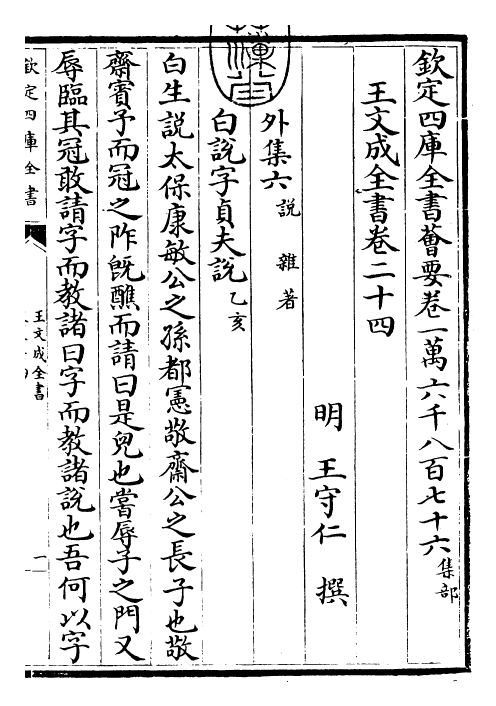 欽定四庫全書薈要卷一萬六千八百七十六集部
王文成全書卷二十四
明 王守仁 撰
外集六說 雜著
白說字貞夫說乙亥
白生說太保康敏公之孫都憲敬齋公之長子也敬
齋賓予而冠之阼旣醮而請曰是兒也嘗辱子之門又
辱臨其冠敢請字而教諸曰字而教諸說也吾何以字
欽定四庫全書
王文成全書
一